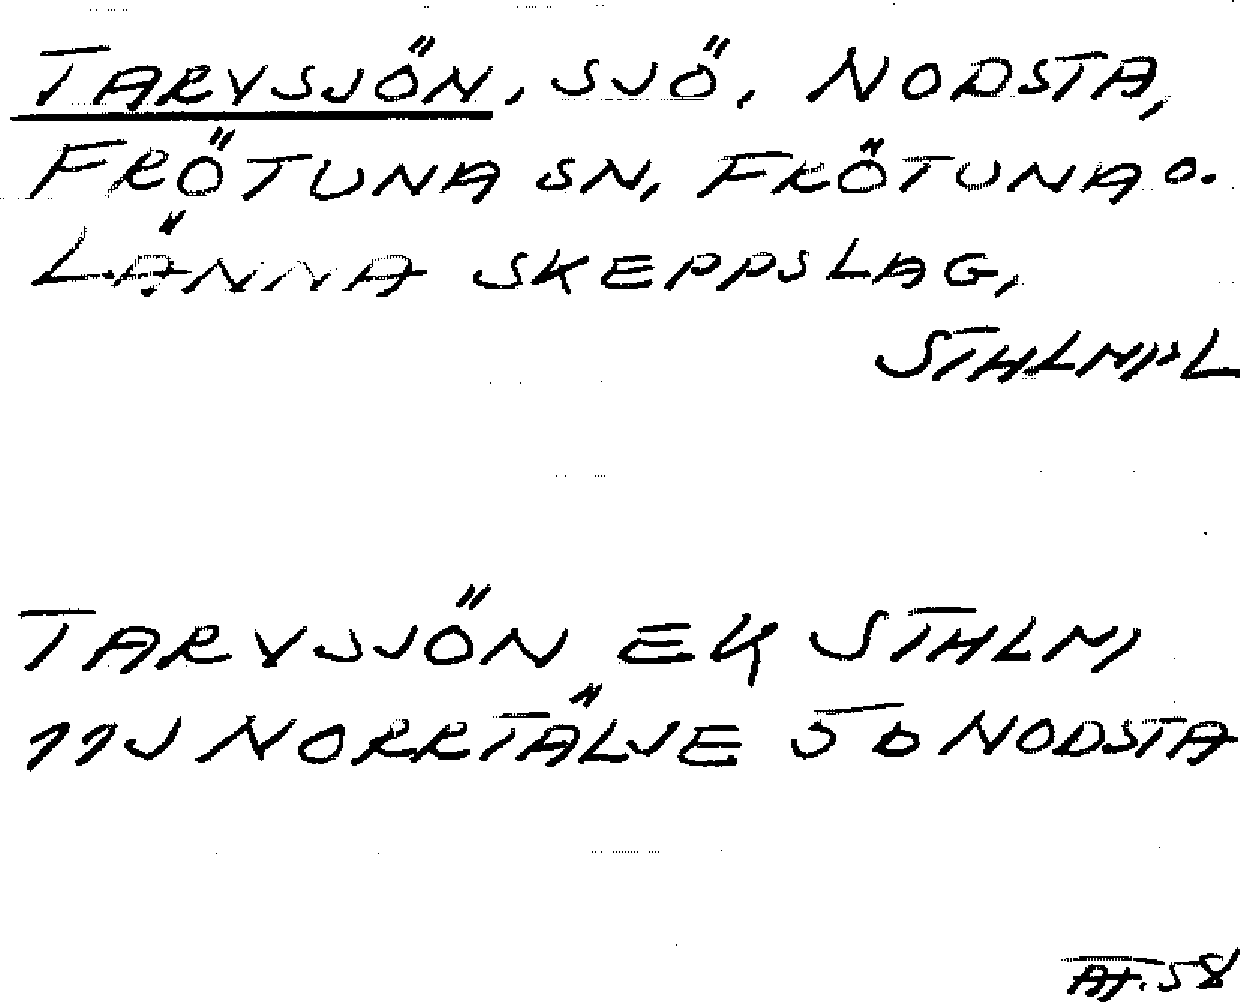 TARVSJÖN, SJÖ, NODSTA,
FRÖTUNA SN, FRÖTUNA O.
LÄNNA SKEPPSLAG,
STHLMSL
TARVSJÖN EK STHLM
11J NORRTÄLJE 5b NODSTA
AT. 58